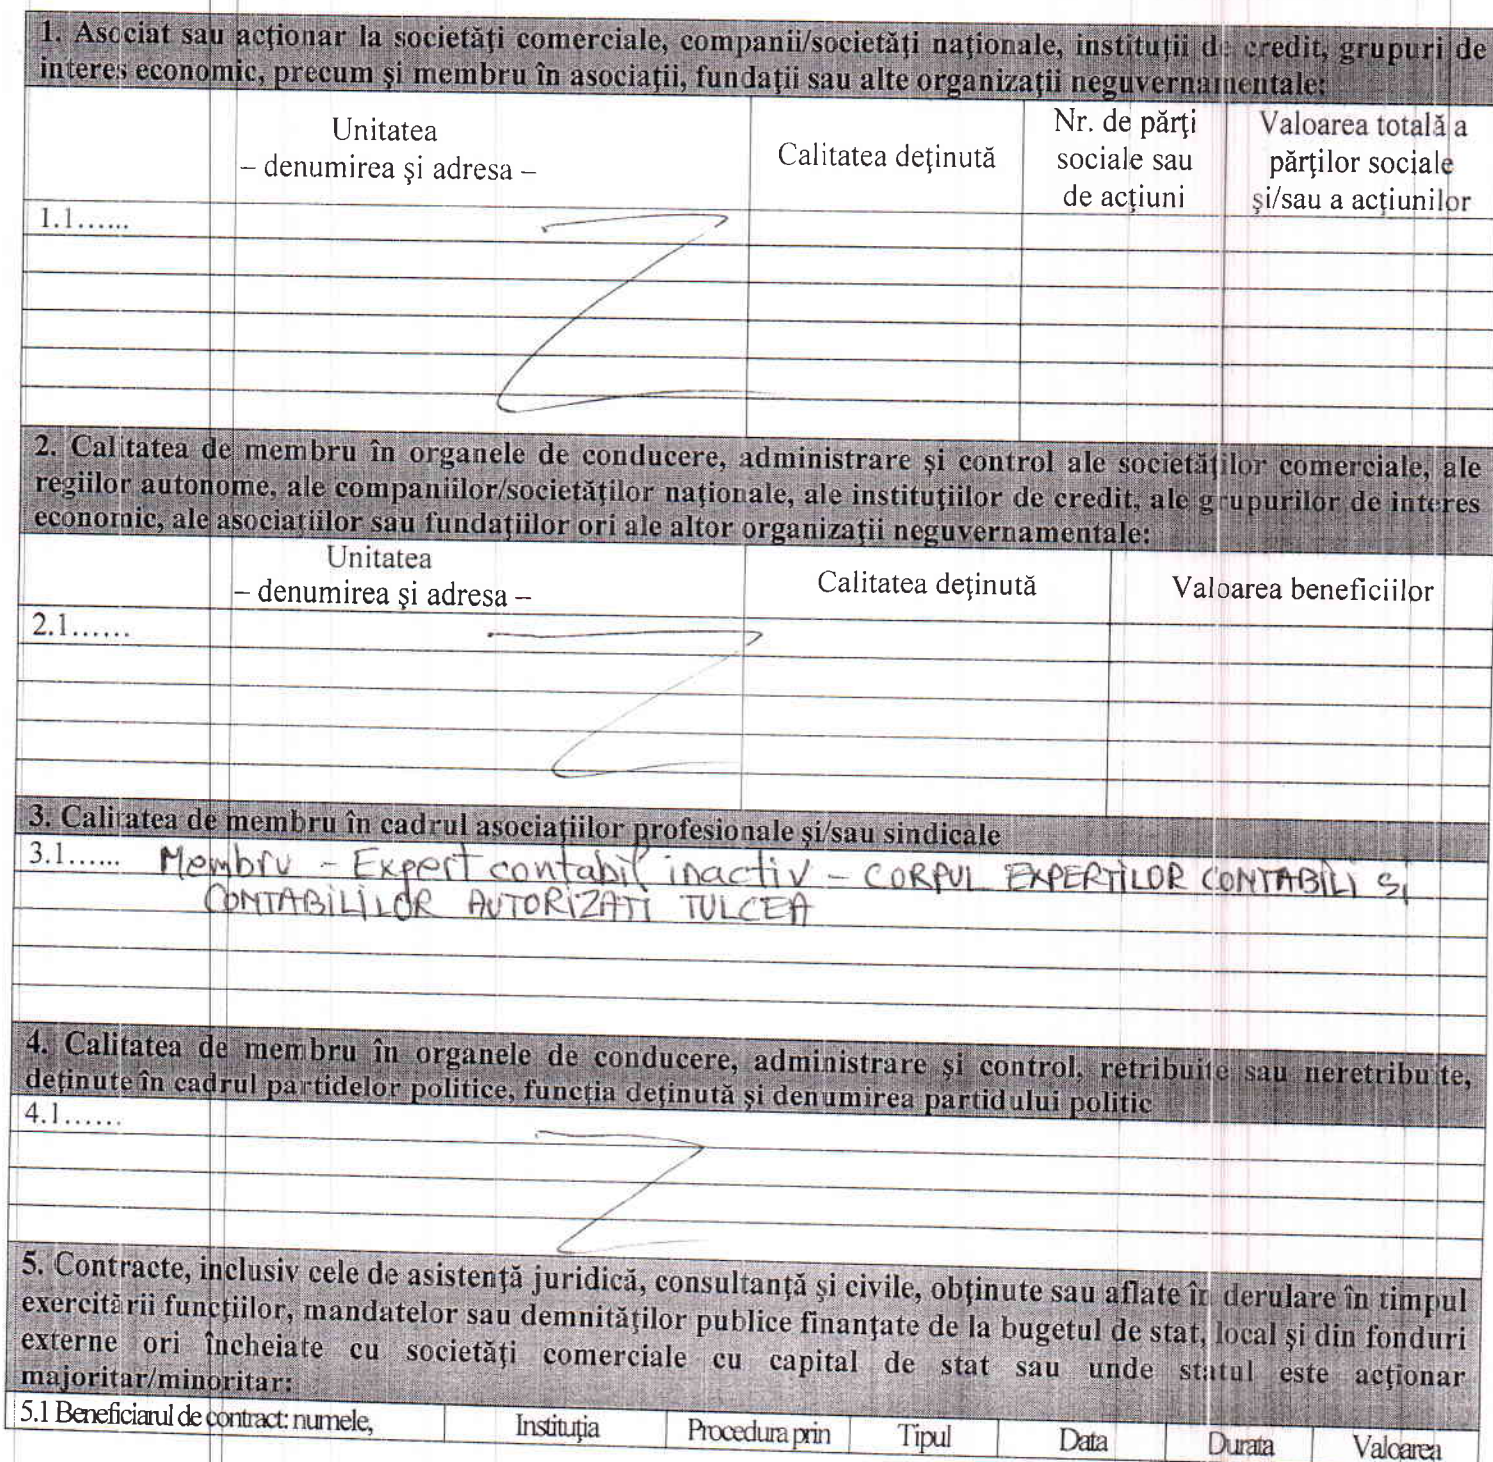 1. Asociat sau acţionar la societăţi comerciale, companii/societăţi naţionale, instituţii de credit, grupuri de
interes economic, precum şi membru în asociaţii, fundaţii sau alte organizaţii neguvernamentale:
Unitatea
– denumirea şi adresa –
Calitatea deţinută
Nr. de părţi
sociale sau
de acţiuni
Valoarea totală a
părţilor sociale
şi/sau a acţiunilor
1.1......
2. Calitatea de membru în organele de conducere, administrare şi control ale societăţilor comerciale, ale
regiilor autonome, ale companiilor/societăţilor naţionale, ale instituţiilor de credit, ale grupurilor de interes
economic, ale asociaţiilor sau fundaţiilor ori ale altor organizaţii neguvernamentale:
Unitatea
– denumirea şi adresa –
Calitatea deţinută
Valoarea beneficiilor
2.1......
3. Calitatea de membru în cadrul asociaţiilor profesionale şi/sau sindicale
3.1...... Membru - Expert contabil inactiv - CORPUL EXPERTILOR CONTABILI SI
CONTABILILOR AUTORIZATI TULCEA
4. Calitatea de membru în organele de conducere, administrare şi control, retribuite sau neretribuite,
deţinute în cadrul partidelor politice, funcţia deţinută şi denumirea partidului politic
4.1......
5. Contracte, inclusiv cele de asistenţă juridică, consultanţă şi civile, obţinute sau aflate în derulare în timpul
exercitării funcţiilor, mandatelor sau demnităţilor publice finanţate de la bugetul de stat, local şi din fonduri
externe ori încheiate cu societăţi comerciale cu capital de stat sau unde statul este acţionar
majoritar/minoritar:
5.1 Beneficiarul de contract: numele,
Instituţia
Procedura prin
Tipul
Data
Durata
Valoarea